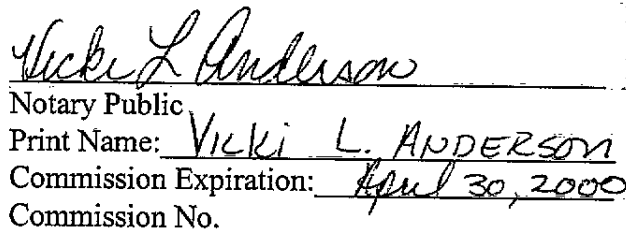 Vicki L Anderson
Notary Public
Print Name: Vicki L. ANDERSON
Commission Expiration: April 30, 2000
Commission No.